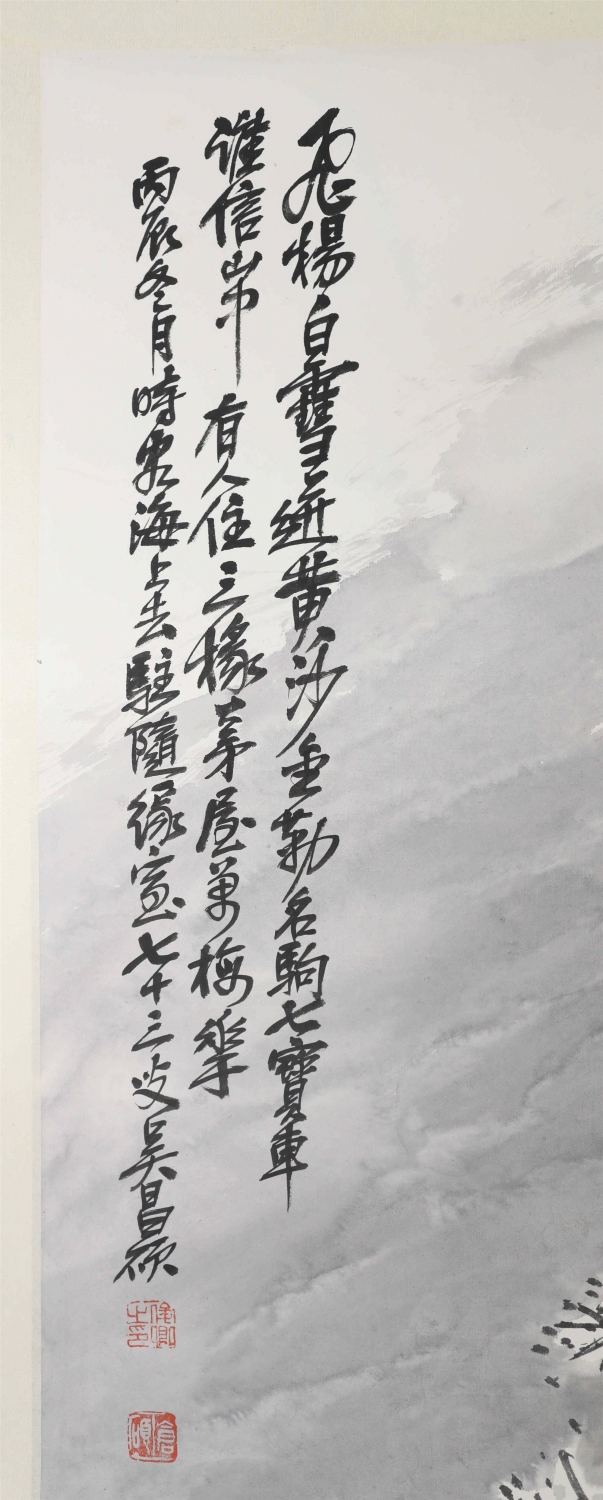 飛揚白雪迸黃沙金勒名駒七寶車
誰信山中有人住三椽茅屋萬梅華
丙辰冬月時客海上去駐隨緣室七十三叟吳昌碩
俊卿之印
倉碩